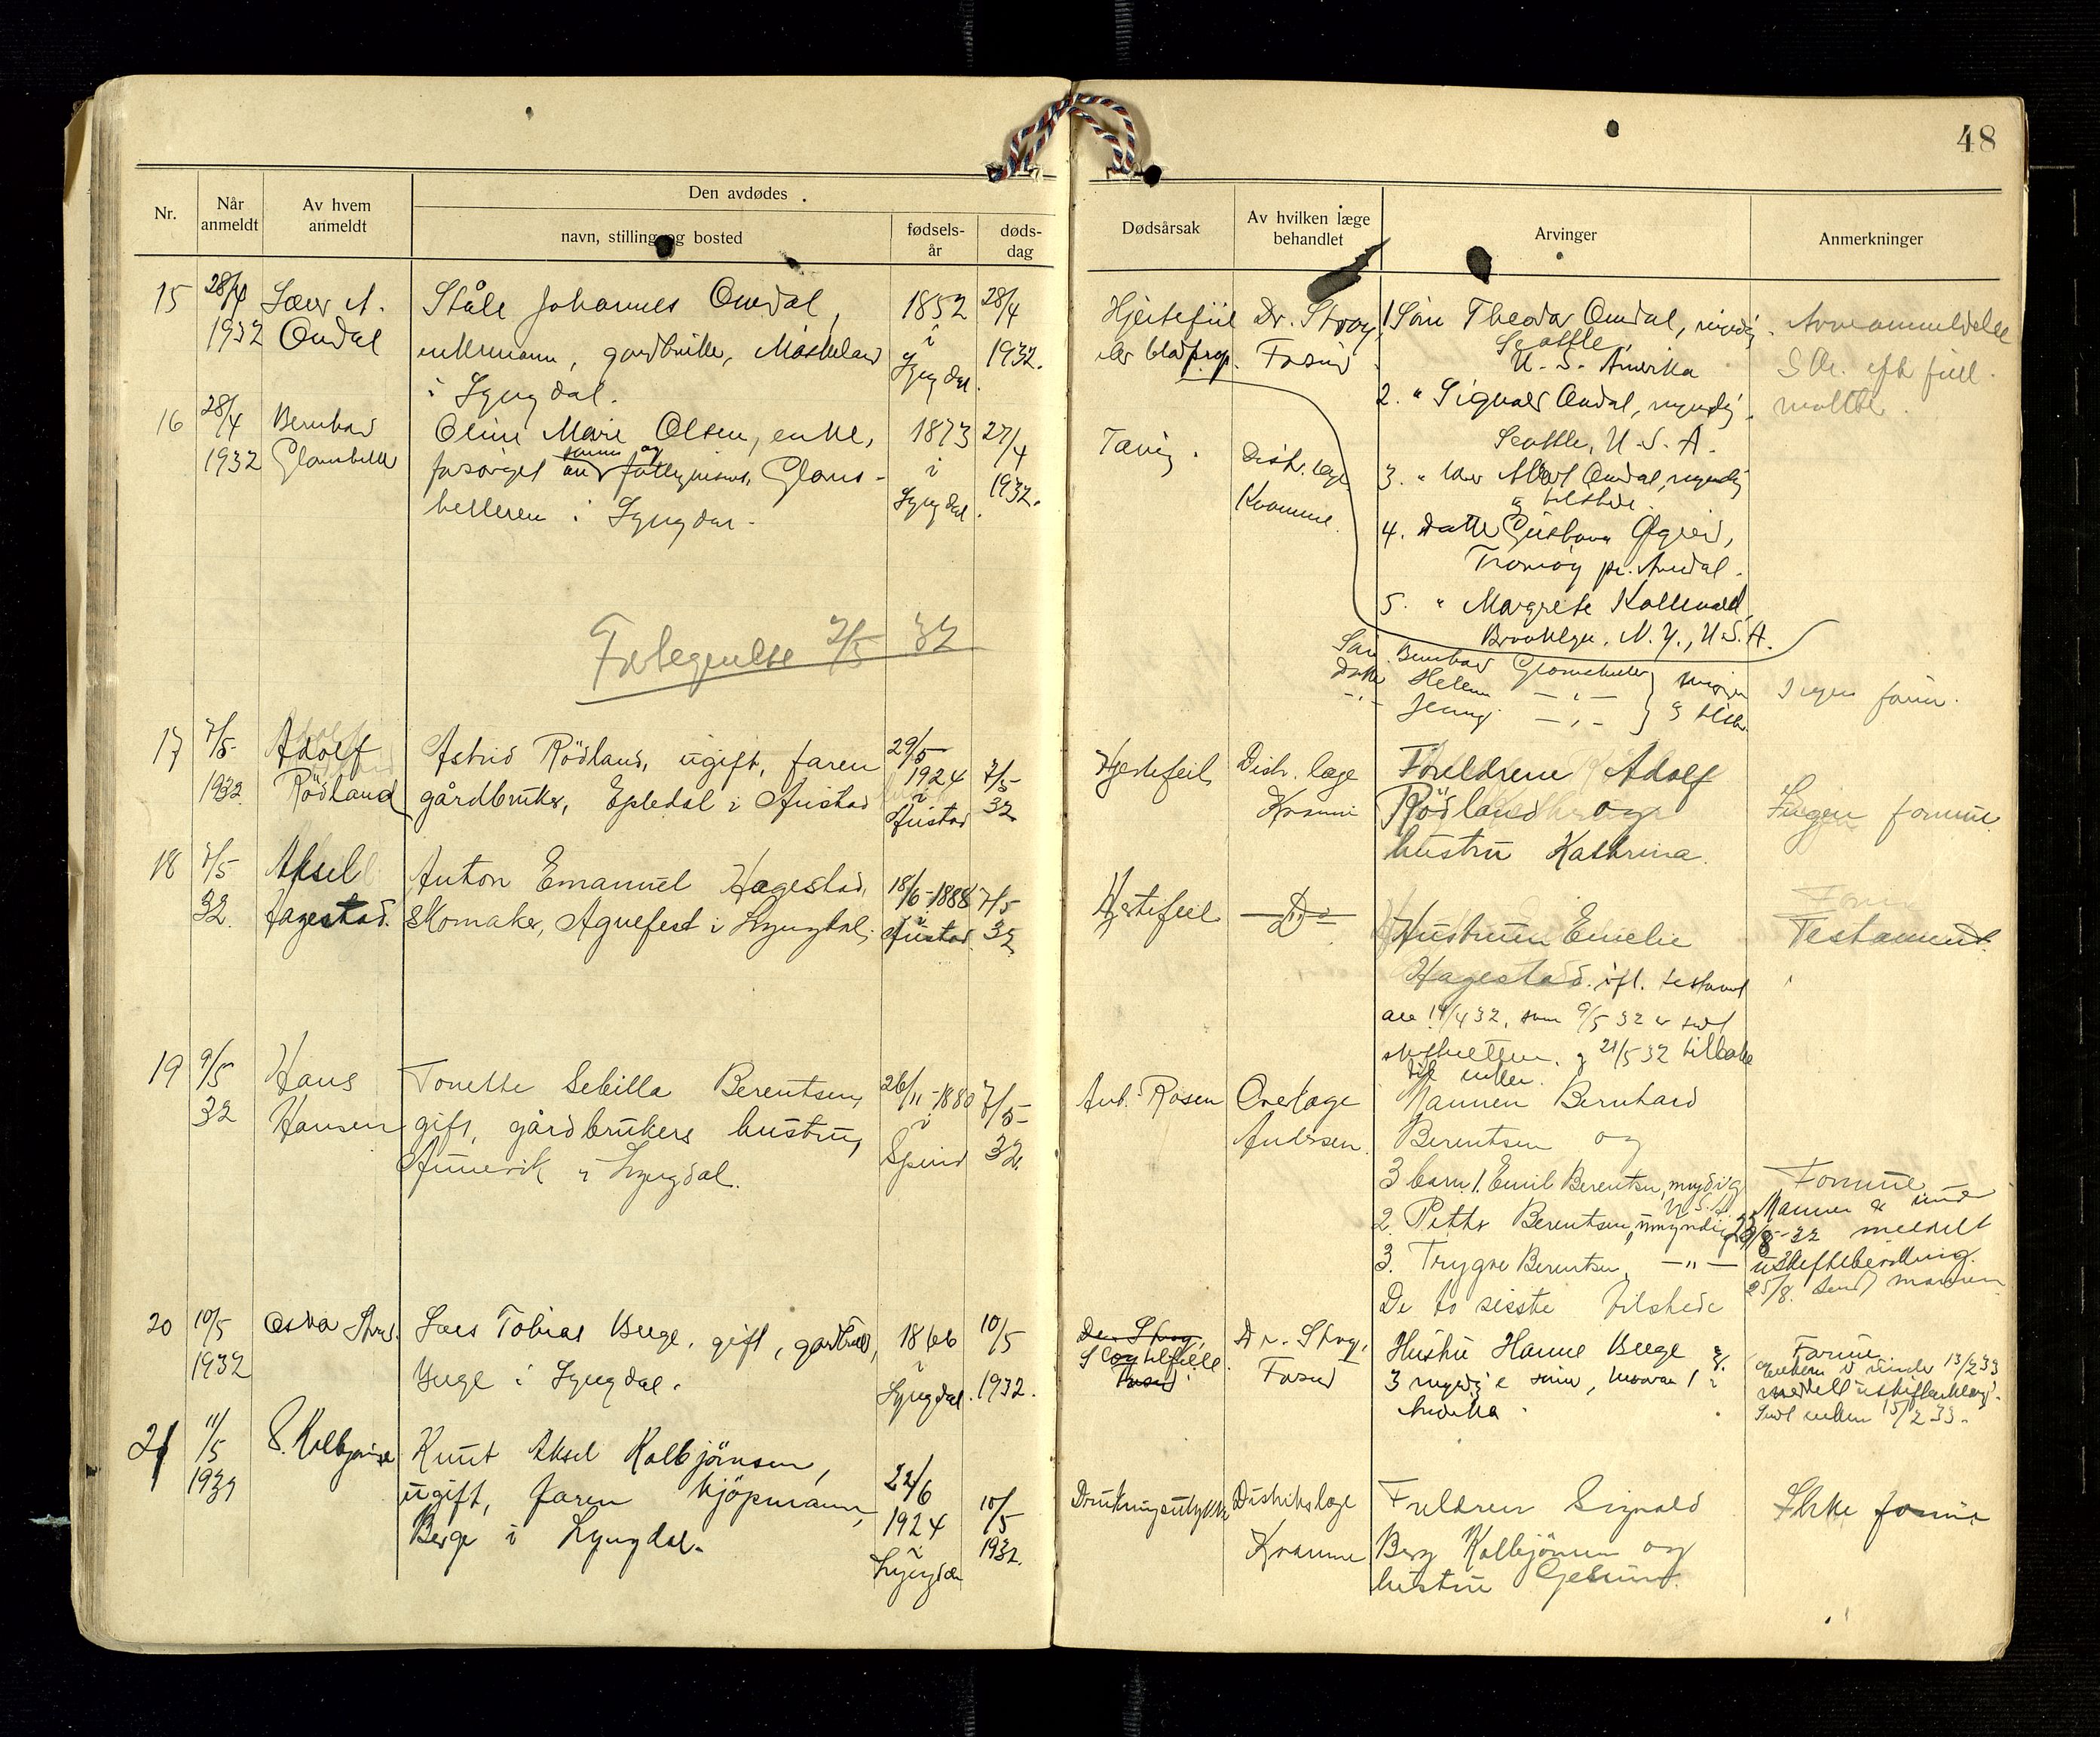 48
Nr.
Når anmeldt
Av hvem anmeldt
Den avdødes
navn, stilling og bosted
fødsels-år
døds-dag
Dødsårsak
Av hvilken læge behandlet
Arvinger
Anmerkninger
15
28/4 1932
Omdal
Ståle Johannes Omdal,
enkemann, gardbruker,
i Lyngdal.
1852
i
Lyngdal.
28/4
1932.
Hjertefeil
Dr. Stray,
Farsund
1 Søn Theodor Omdal, myndig.
Seattle,
U. S. Amerika
2. " Sigvald Omdal, myndig.
Seattle, U. S. A.
3. " Albert Omdal, myndig
og tilstede.
4. Datter Gustava
Tromøy pr. Arendal.
5. " Margrete
Brooklyn, N. Y., U.S.A.
16
28/4
1932
Bernhard
Oline Marie Olsen, enke,
forsørget av sønn og
i Lyngdal.
1873
i
Lyngdal.
27/4
1932.
Tæring.
Distr. læge
Kvamme.
Søn Bernhard
Datter Helene — " —
— " — Jenny — " —
Ingen formue.
Folegnelse 2/5 32
17
7/5
1932
Adolf
Rödland
Astrid Rödland, ugift, faren
gårdbruker, Epledal i Austad
29/5
1924
i
Austad
7/5
32
Hjertefeil
Distr. læge
Kvamme
Foreldrene Adolf
Rödland og
hustru Kathrina.
Ingen formue.
18
7/5
32.
Aksel
Hagestad.
Anton Emanuel Hagestad,
skomaker, Agnefest i Lyngdal,
18/6-1888
i
Austad.
7/5
32
Hjertefeil
— D° —
Hustruen Emelie
Hagestad. ifl. testament
av 14/4 32, som 9/5 32 er sendt
skifteretten. og 21/5 32 tilbake
til enken.
Testament.
19
9/5
32
Hans
Hansen
Tonette Sebilla Berentsen,
gift, gårdbrukers hustru,
i Lyngdal.
26/11-1880
i
Spind
7/5-
32.
Ant. Rosen
Overlæge
Andersen.
Mannen Bernhard
Berentsen og
3 barn 1. Emil Berentsen, myndig
U.S.A.
2. Petter Berentsen, umyndig
3. Trygve Berentsen, — " —
De to sisste tilstede
Formue
Mannen er under
meddelt
uskiftebevilling.
25/8. sendt mannen
20
10/5
1932
Lars Tobias Berge, gift, gardbruker,
Berge i Lyngdal.
1866
i
Lyngdal.
10/5
1932.
Dr. Stray,
Dr. Stray,
Farsund
Hustru Hanne Berge og
3 myndige sønner, hvorav 1 i
Amerika.
Formue.
Enken er under 13/2 33
meddelt uskiftebevilling.
Sendt enken 15/2 33.
21
11/5
1932
S. Kolbjørnsen
Knut Aksel Kolbjörnsen,
ugift, faren kjöpmann,
Berge i Lyngdal.
22/6
1924
i
Lyngdal
10/5
1932.
Drukningsulykke
Distriktslæge
Kvamme
Foreldrene Sigvald
Berg Kolbjörnsen og
hustru
Ikke formue